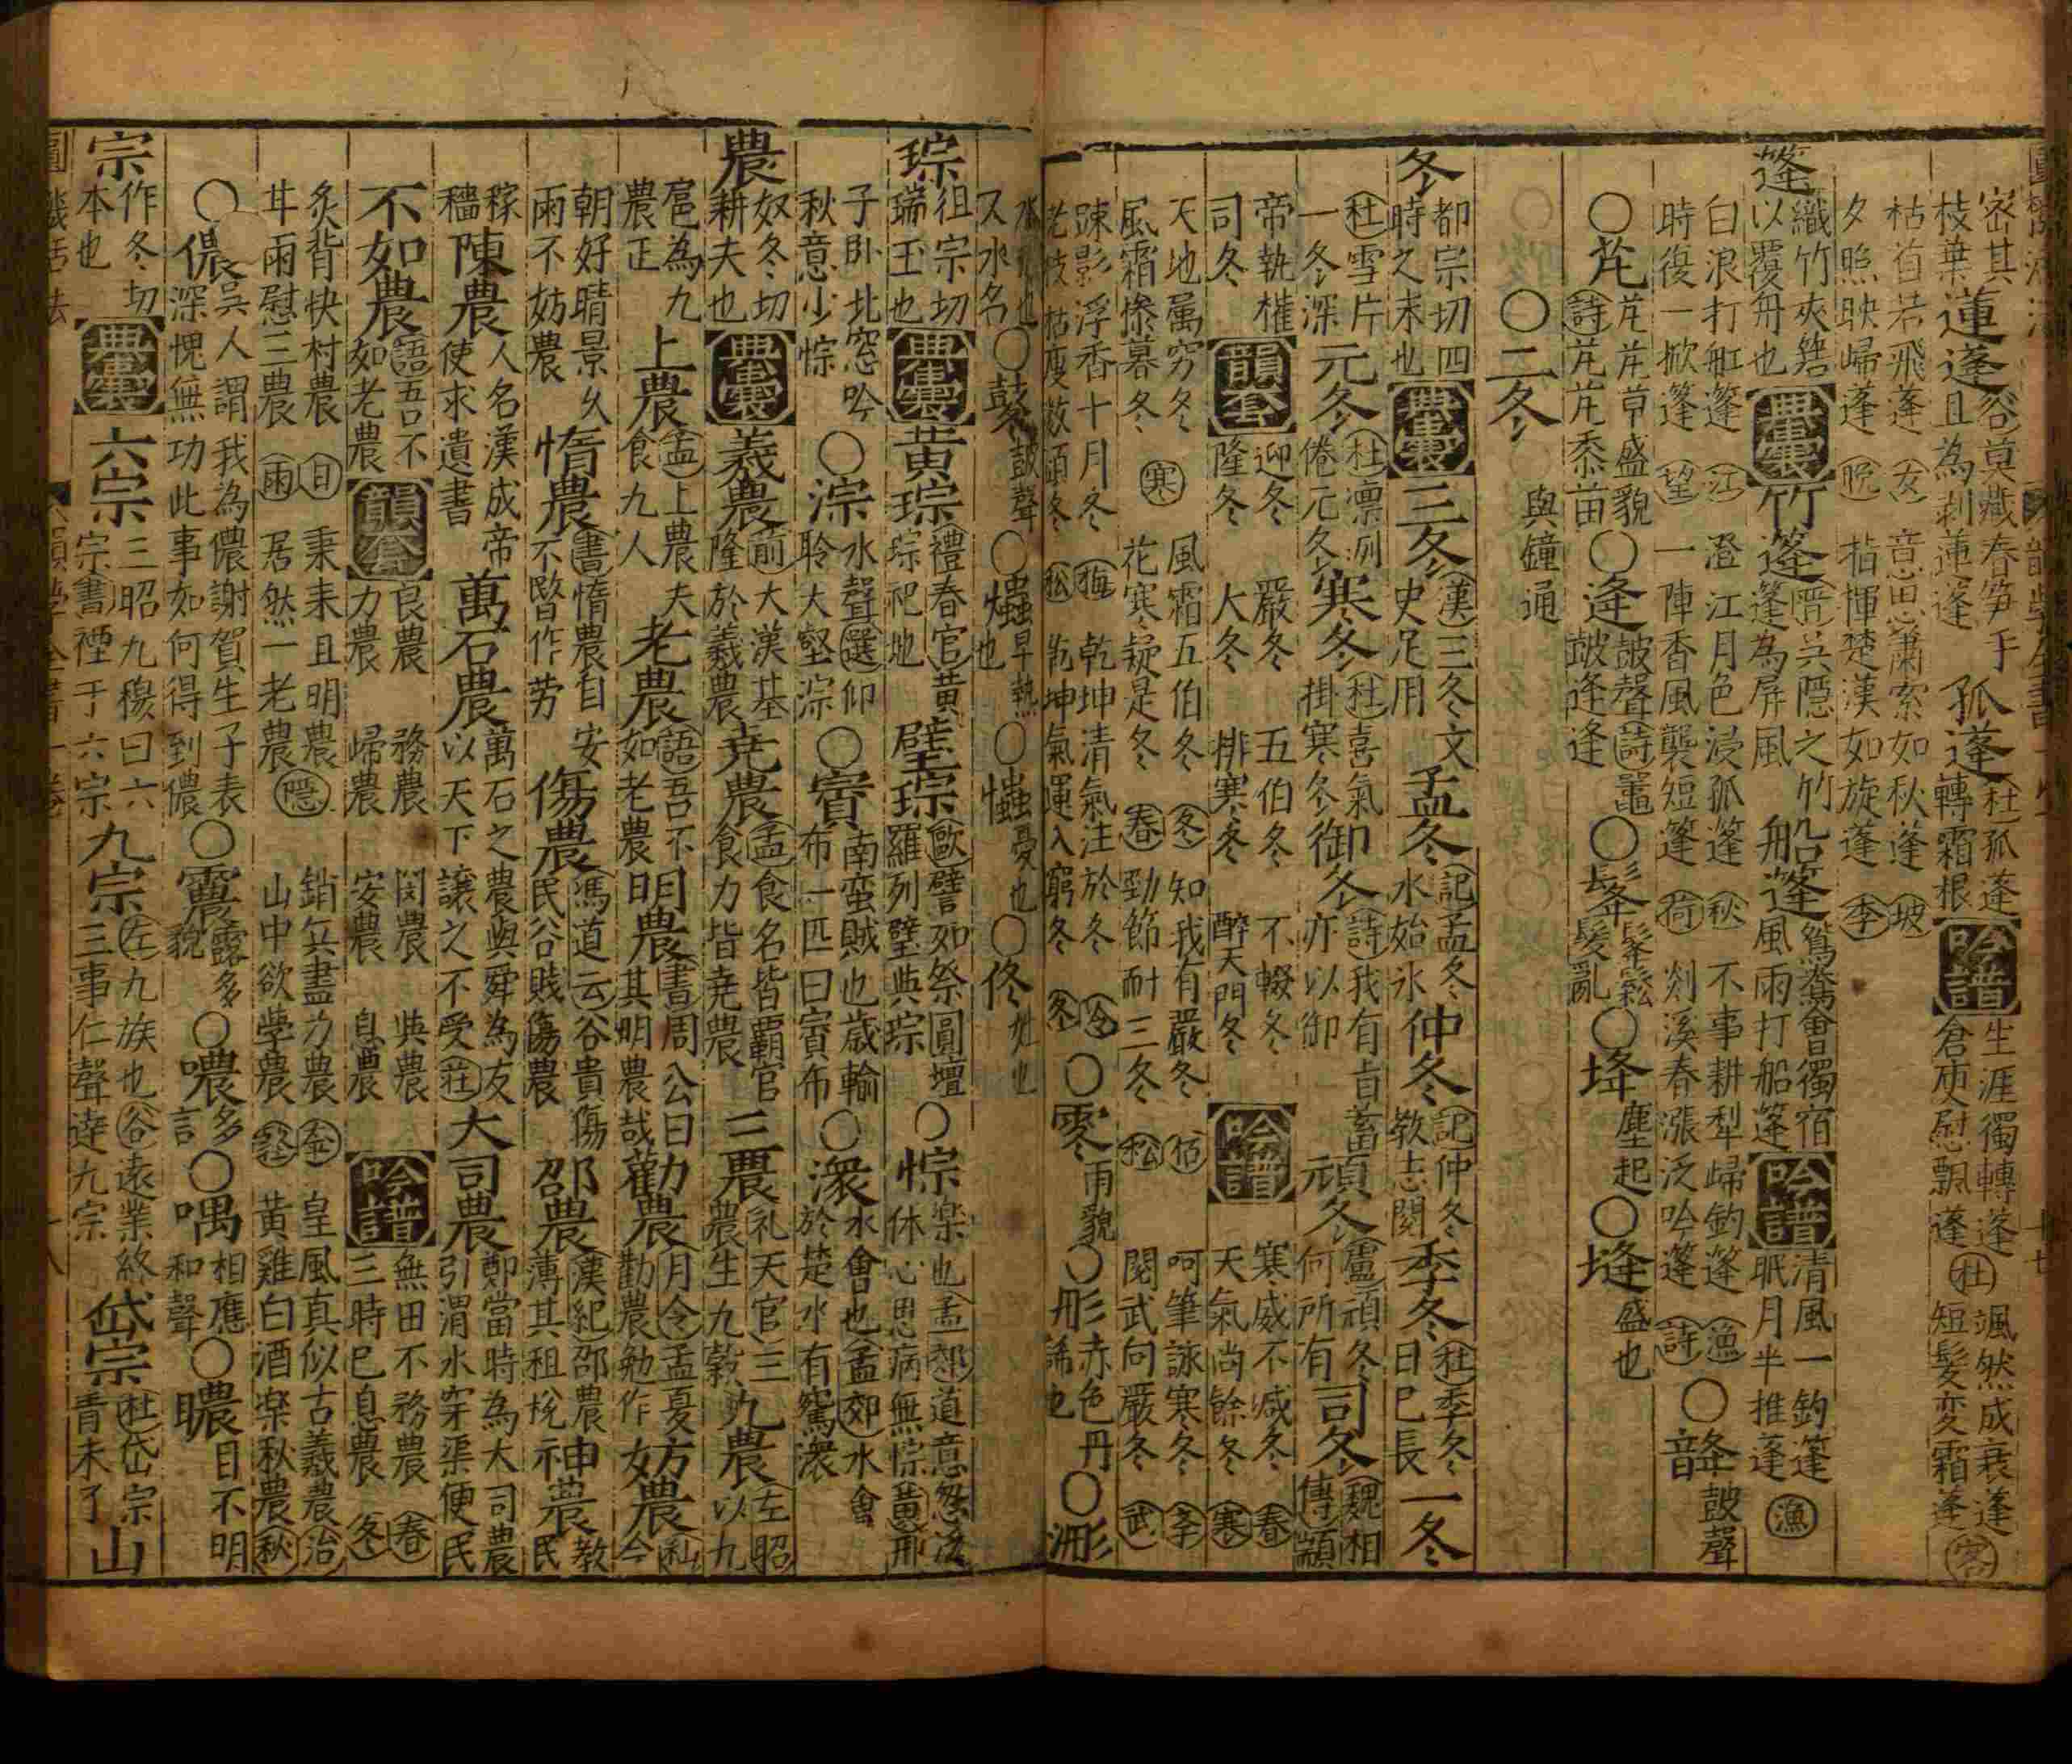 密其枝葉 蓮蓬 谷莫藏春笋手且為剥蓮蓬 孤蓬 杜孤蓬轉霜根 吟譜 生涯獨轉蓬 倉庾慰飄蓬 杜 颯然成衰蓬 短髮変霜蓬 客
枯荷若飛蓬 夕照映歸蓬 友 晚 意思蕭索如秋蓬 指揮楚漢如旋蓬 坡 季
篷 織竹夾箬以覆舟也 典囊 竹篷 吳隱之竹篷為屏風 船篷 鴛鴦會獨宿 風雨打船篷 吟譜 清風一釣篷 眠月半推蓬 漁
白浪打舡篷 時復一掀篷 江 望 澄江月色浸孤篷 一陣香風襲短篷 秋 荷 不事耕犁歸釣篷 剡溪春漲泛吟篷 漁 詩 ○韸 鼓聲
○芃 芃芃草盛貌 詩芃芃黍苗 ○逢 鼓聲 詩鼉鼓逢逢 ○髼 髼鬆髮亂 ○埄 塵起 ○塳 盛也
○二冬 與鐘通
冬 都宗切四時之末也 典囊 三冬 漢三冬文史足用 孟冬 記孟冬水始氷 仲冬 記仲冬教志閱 季冬 杜季冬日已長 一冬
杜雪片一冬深 元冬 杜凛冽倦元冬 寒冬 杜喜氣掛寒冬 御冬 詩我有旨畜亦以御 頑冬 盧頑冬何所有 司冬 魏相傳顓
帝執權司冬 韻套 迎冬 隆冬 嚴冬 大冬 五伯冬 排寒冬 不輟冬 醉天門冬 吟譜 寒威不减冬 天氣尚餘冬 春 寒
天地属穷冬 風霜慘暮冬 寒 風霜五伯冬 花寒疑是冬 冬 春 知我有嚴冬 勁節耐三冬 松 呵筆詠寒冬 閱武向嚴冬 季 武
踈影浮香十月冬 梅 松 乾坤清氣注於冬 乾坤氣運入窮冬 冬 ○霶 雨貌 ○彤 赤色丹 ○浵
又水名 ○鼕 鼓聲 ○爞 旱熱也 ○懺 憂也 ○佟 姓也
琮 徂宗切瑞玉也 典囊 黄琮 禮春官黄琮祀地 璧琮 歐譬如祭圓壇羅列璧與琮 ○悰 楽也 心思病無悰
子卧北窓吟秋意少悰 ○淙 水聲 選仰聆大壑淙 ○賨 南蛮賦也歲輸布一匹曰賨布 ○潨 水會也 孟郊水會於楚水有鴛潨
農 奴冬切耕夫也 典囊 羲農 前大漢基隆於羲農 尭農 孟食名皆覇官食力皆尭農 三農 礼天官三農生九穀 九農 左昭以九
扈為九農正 上農 孟上農夫食九人 老農 語吾不如老農 明農 書周公曰其明農哉 勸農 月令孟夏勸農勉作 妨農 今
朝好晴景久雨不妨農 惰農 書惰農自安不昬作劳 傷農 馮道云谷貴傷民谷賤傷農 邵農 漢紀邵農薄其租稅 神農 教民
稼穡 陳農 人名漢成帝使求遺書 萬石農 萬石之農與舜為友以天下譲之不受 莊 大司農 鄭當時為大司農引渭水穿渠便民
不如農 語吾不如老農 韻套 良農 力農 務農 歸農 閔農 安農 典農 息農 吟譜 無田不務農 三時已息農 春 冬
炙背快村農 甘雨慰三農 日 雨 秉耒且明農 居然一老農 隱 銷兵盡力農 山中欲學農 皇風真似古羲農 黄雞白酒楽秋農 治 秋
○儂 吳人謂我為儂謝賀生子表深愧無功此事如何得到儂 ○震 露多貌 ○噥 多言 ○喁 相應和聲 ○曨 日不明
宗 作冬切本也 典囊 六宗 三昭九穆曰六宗 書禋于六宗 九宗 左九族也 谷遠業終三事仁聲達九宗 岱宗 杜岱宗青未了 山